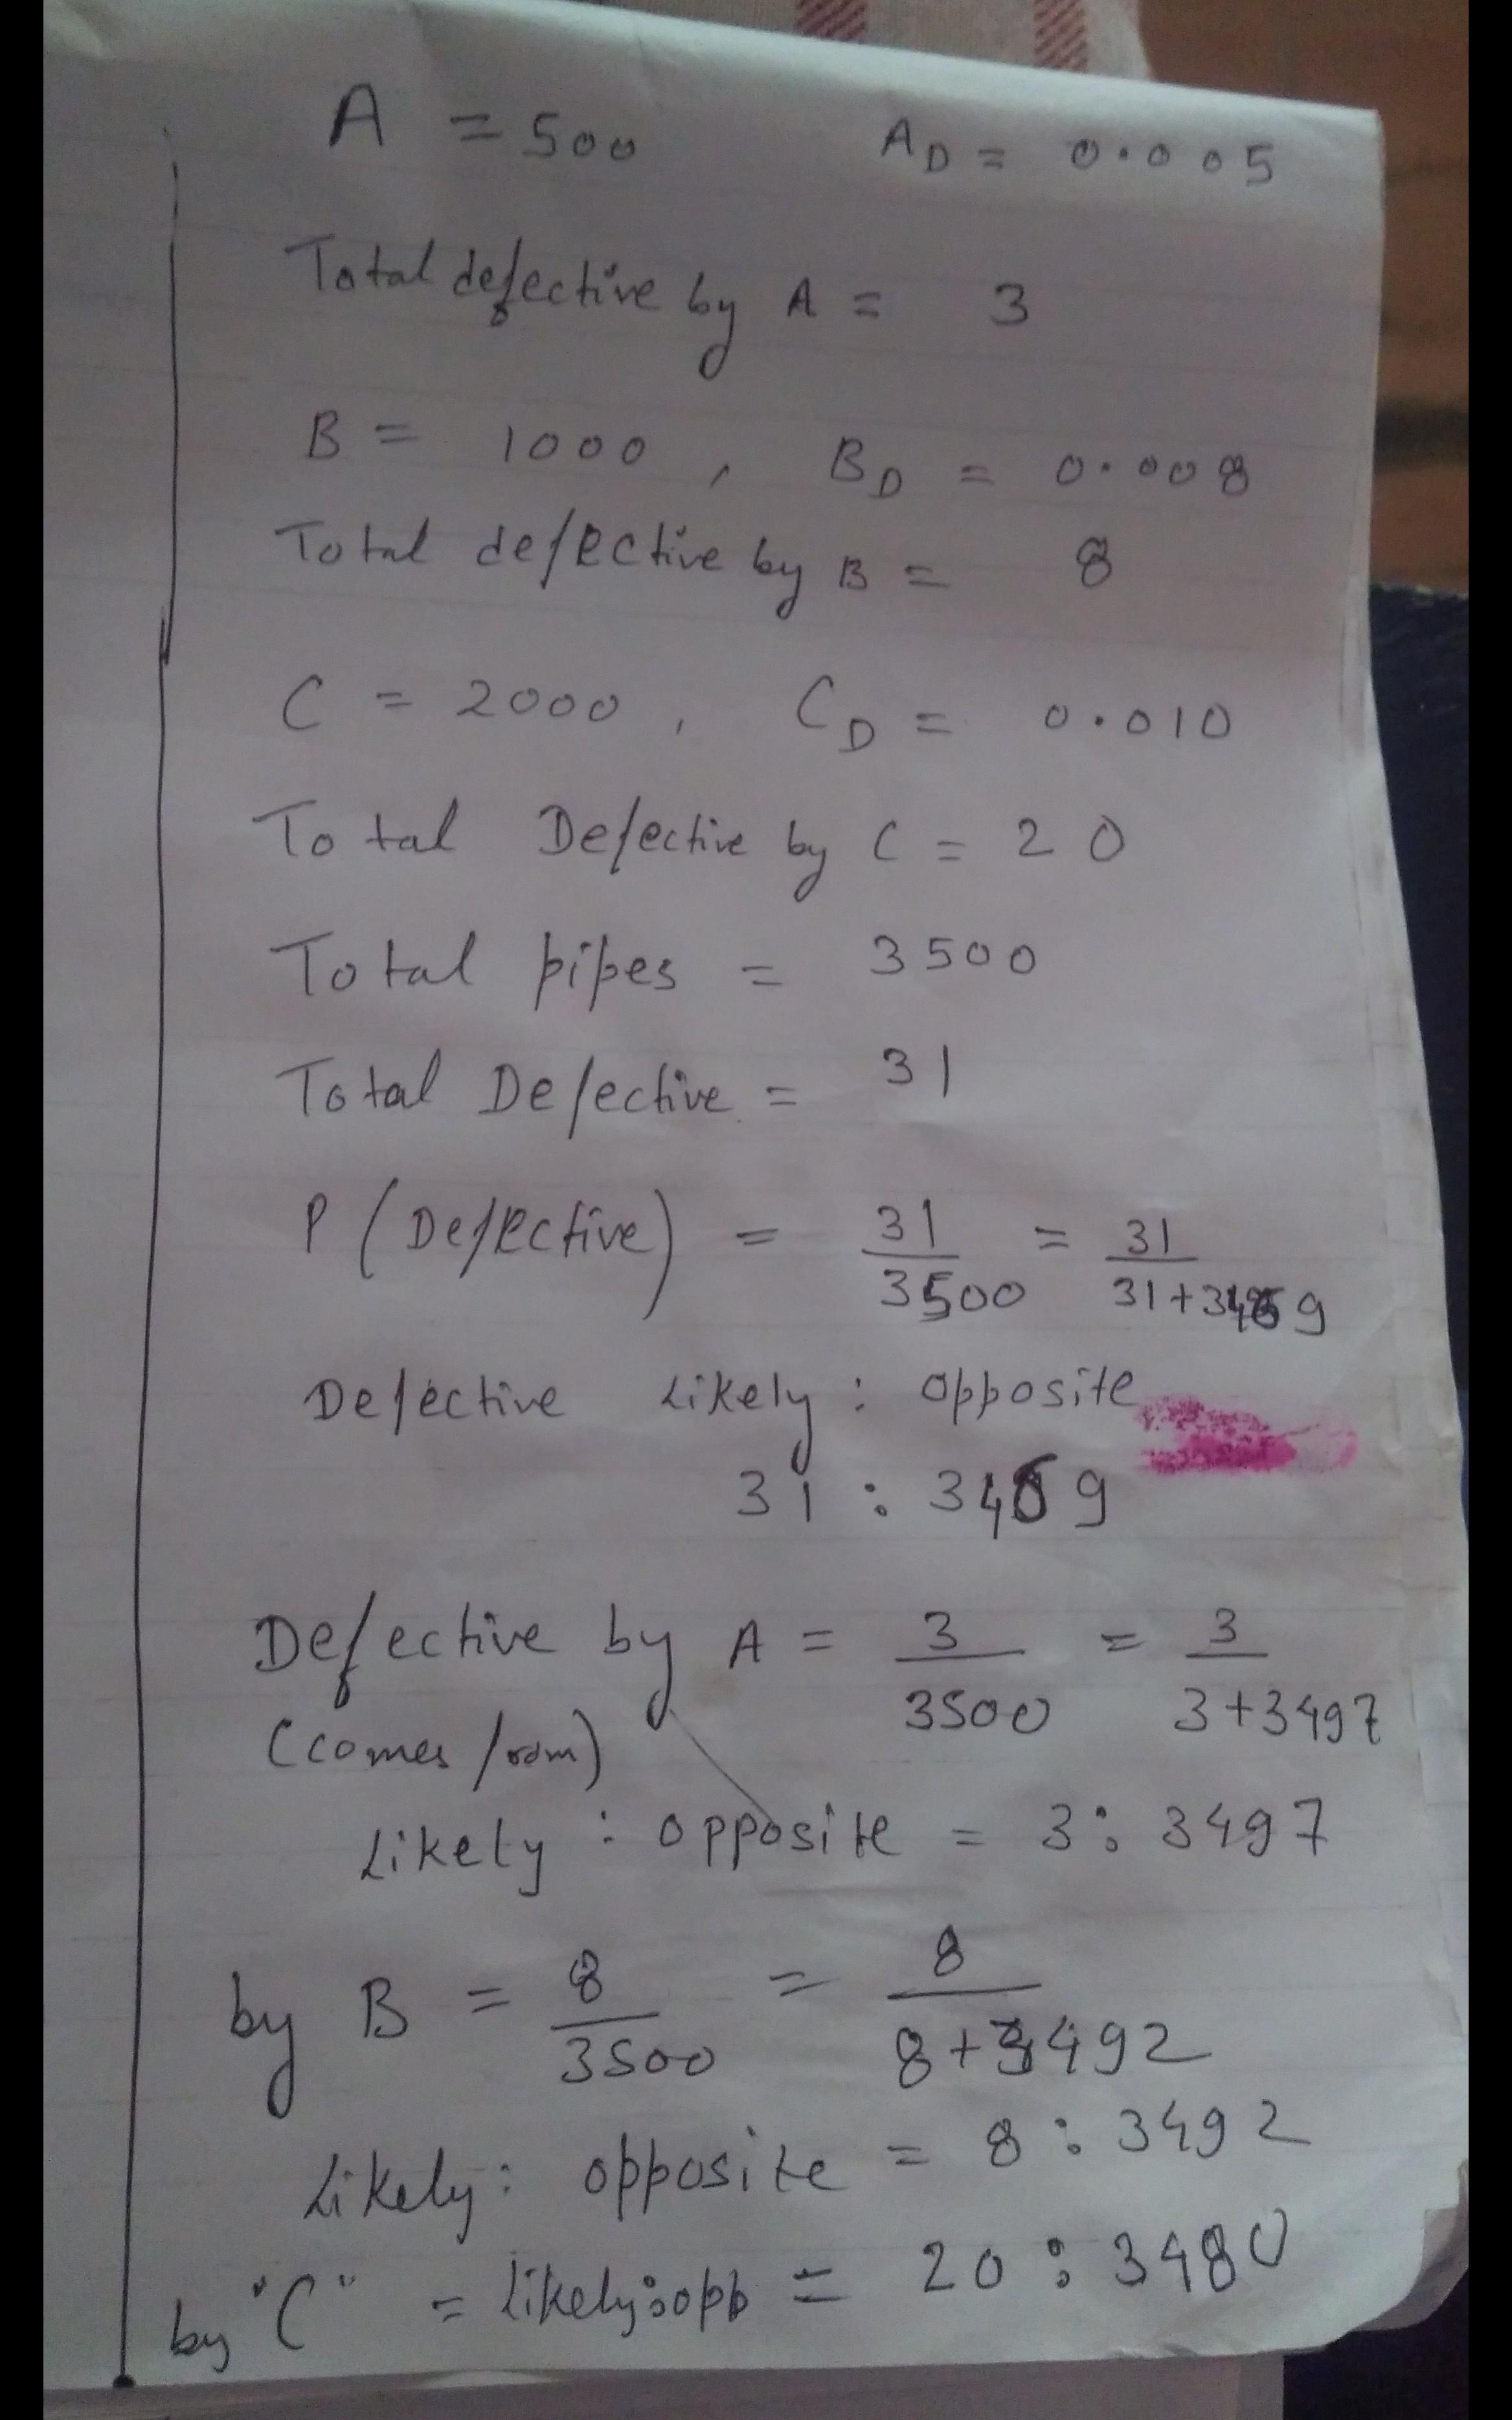 A = 500 A_D = 0.005
Total defective by A = 3
B = 1000 , B_D = 0.008
Total defective by B = 8
C = 2000 , C_D = 0.010
Total Defective by C = 20
Total pipes = 3500
Total Defective = 31
P (Defective) = 31/3500 = 31/(31+3469)
Defective Likely : opposite
31 : 3469
Defective by A = 3/3500 = 3/(3+3497)
(comes from)
Likely : opposite = 3 : 3497
by B = 8/3500 = 8/(8+3492)
Likely : opposite = 8 : 3492
by "C" = likely : opp = 20 : 3480